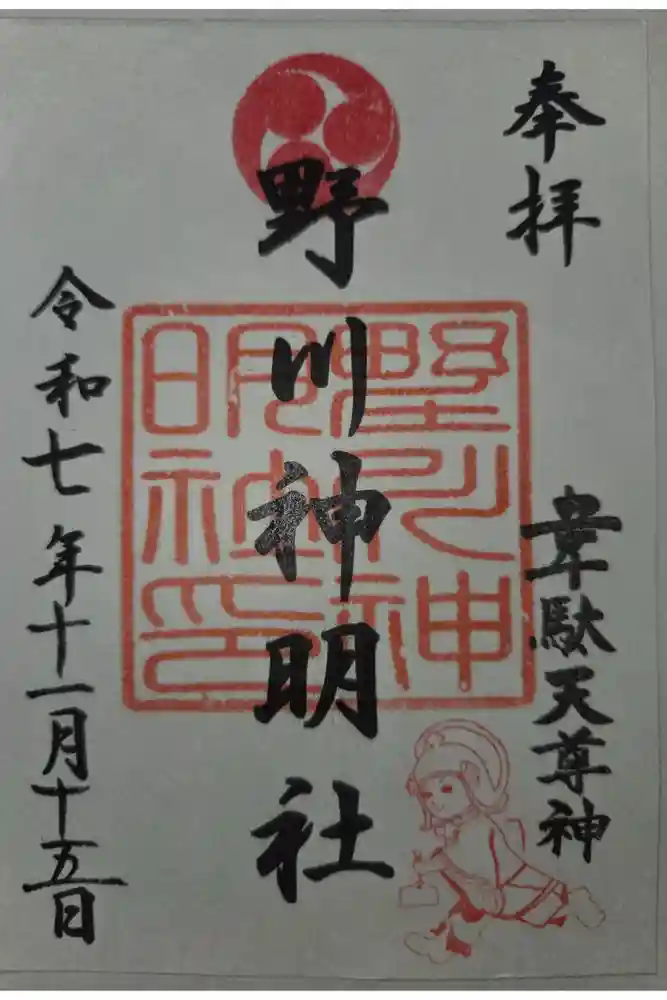 奉拝
韋駄天尊神
野川神明社
野川神
明神社印
令和七年十一月十五日